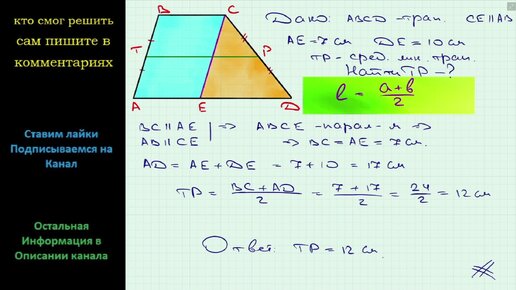 кто смог решить
сам пишите в
комментариях
Ставим лайки
Подписываемся на
Канал
Остальная
Информация в
Описании канала
B C
T P
A E D
Дано: ABCD-трап. CE∥AB
AE=7см DE=10см
TP-сред. лин. трап.
Найти TP-?
l = (a+b)/2
BC∥AE | ⇒ ABCE -парал-м ⇒
AB∥CE | ⇒ BC=AE=7см.
AD=AE+DE = 7+10=17см
TP = (BC+AD)/2 = (7+17)/2 = 24/2 = 12см
Ответ: TP=12см.